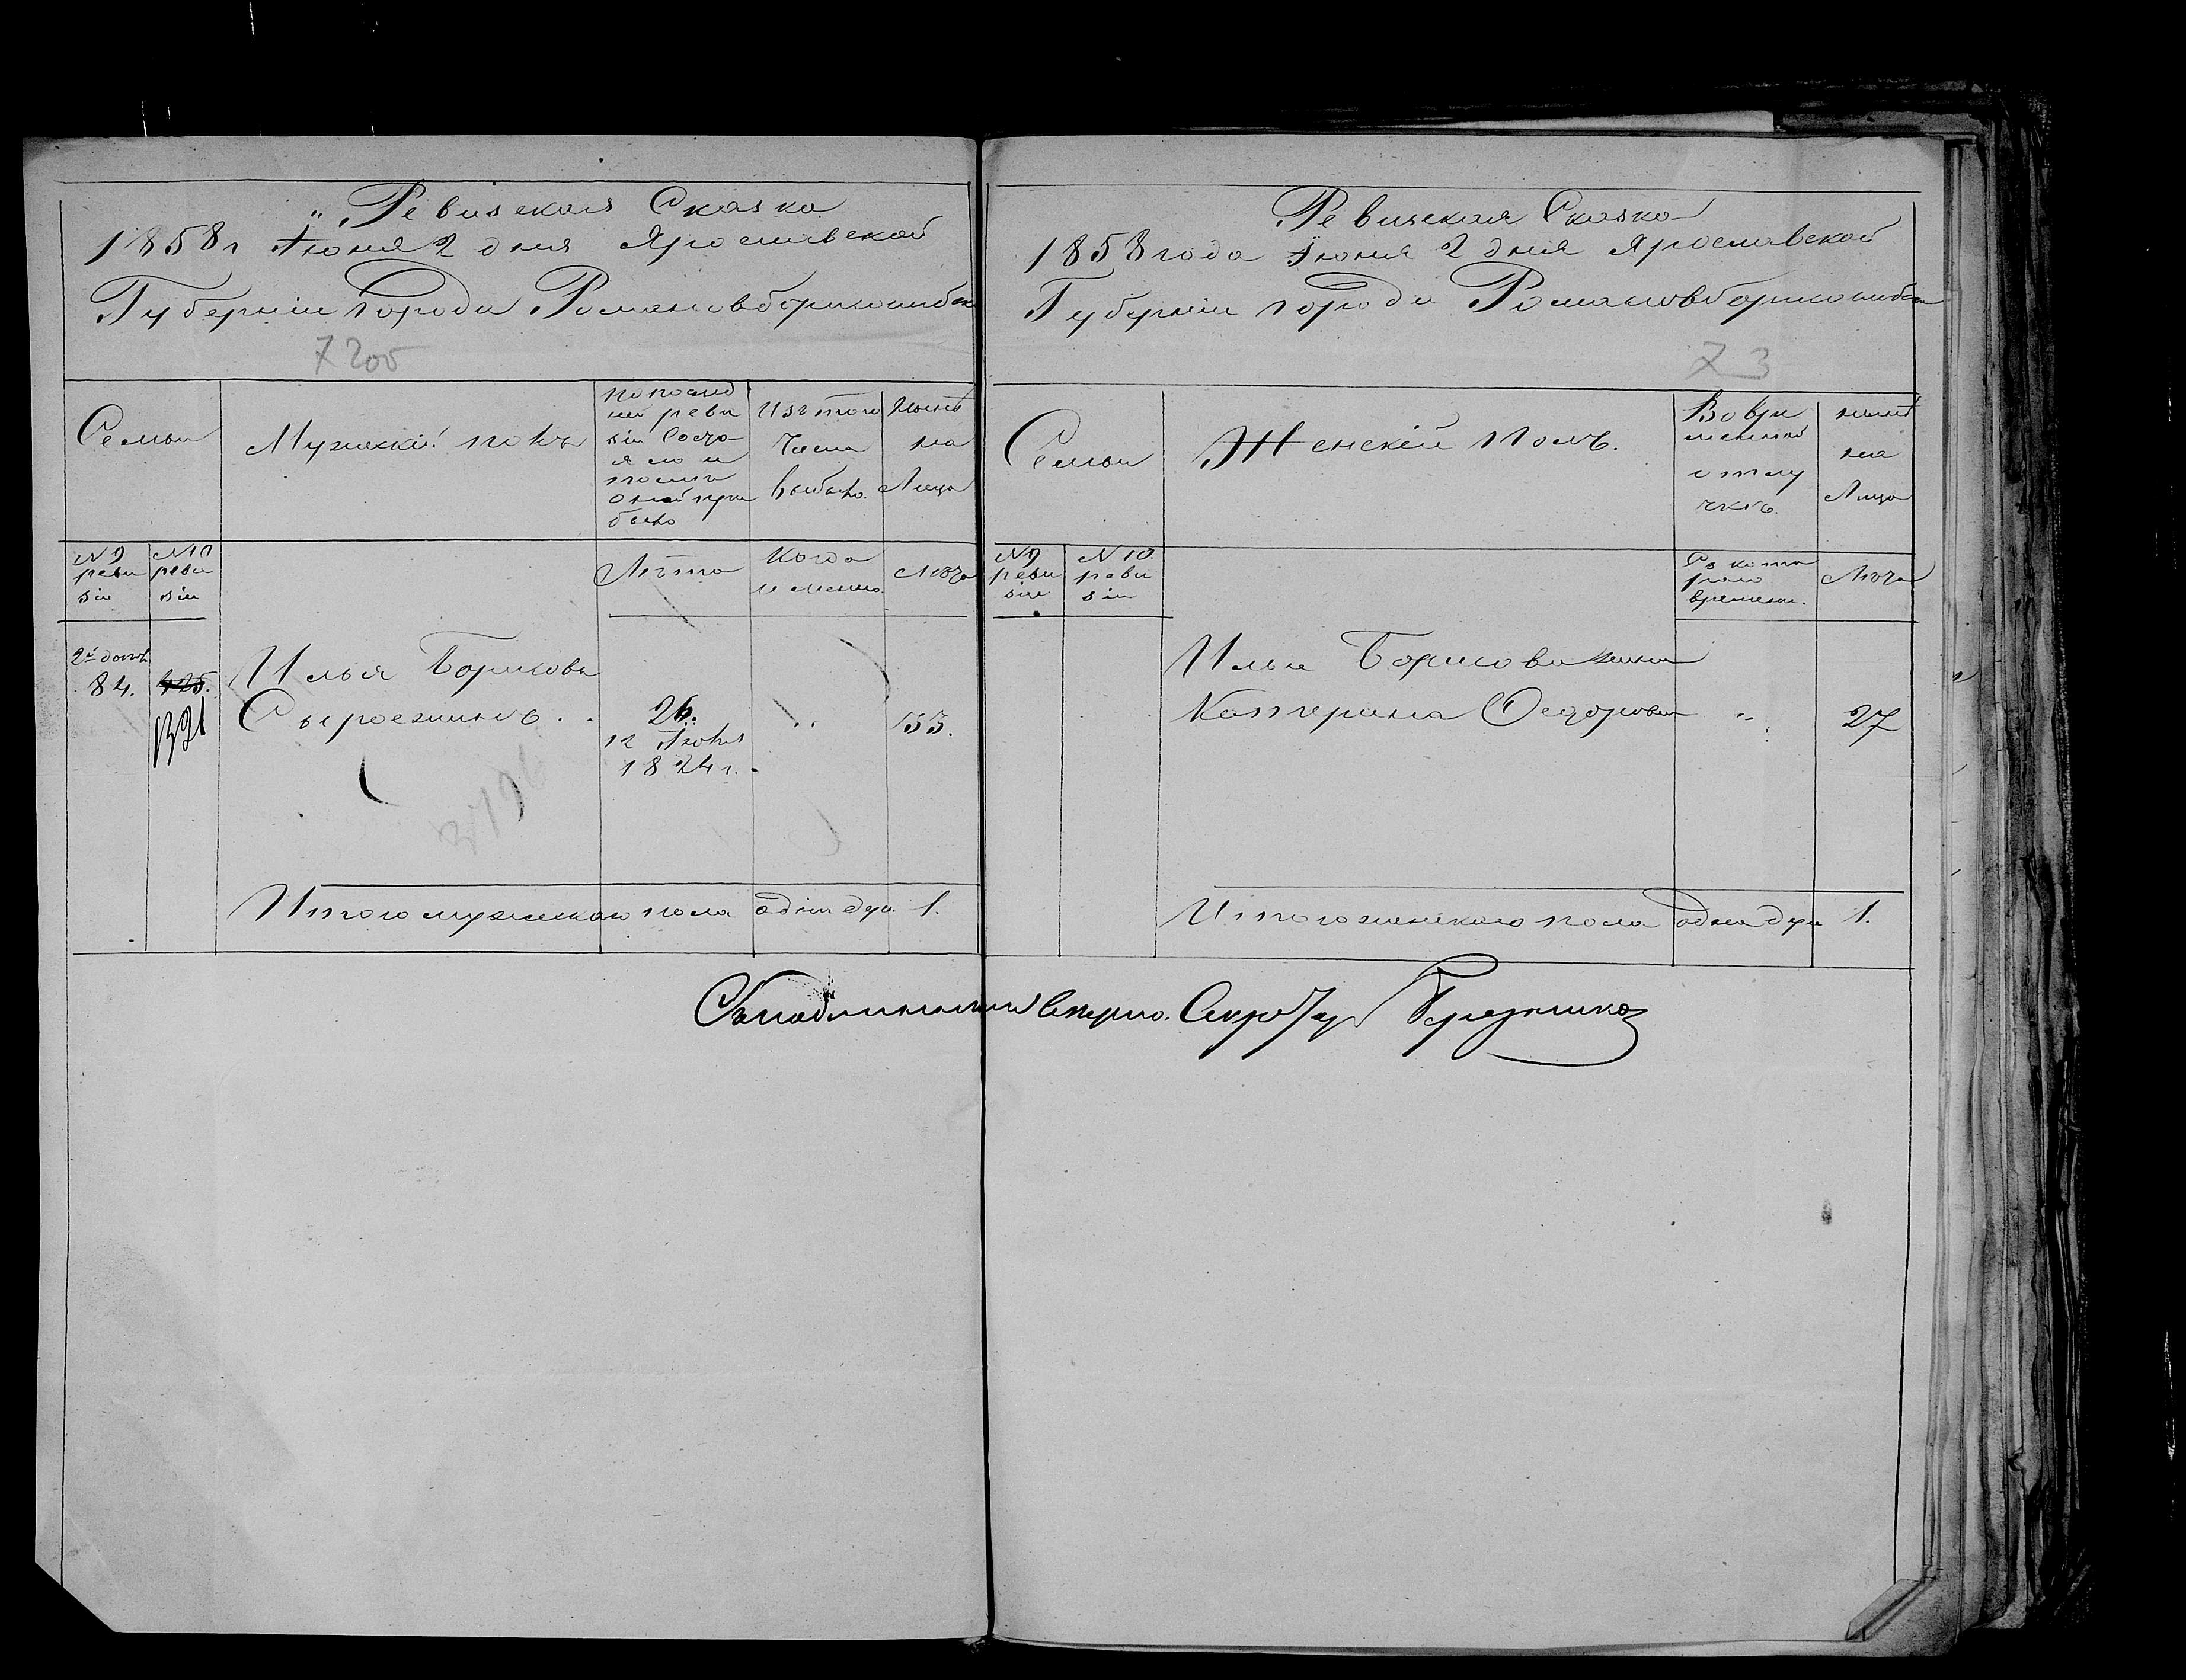 Ревизская Сказка
1858 г Іюня 2 дня Ярославской
Губерніи Города Романовборисоглебска
7 205
Семьи
Мужескій полъ
по послѣд
ней реви
зіи состо
яло и
послѣ
оной при
было
Изъ того
числа
выбыло.
Нынѣ
на
Лицо
№ 9
реви
зіи
№ 10
реви
зіи
Лѣта
Когда
именно.
Лѣта
84.
425.
1321
Илья Борисовъ
Сыроежинъ
26.
12 Іюня
1824 г.
"
55.
Итого мужескаго пола одна душ. 1.
Ревизская Сказка
1858 года Іюня 2 дня Ярославской
Губерніи города Романовборисоглебска
73
Семьи
Женскій полъ.
Во вре
менной
отлу
чкѣ.
нынѣ
на
Лицо
№ 9
реви
зіи
№ 10
реви
зіи
Съ кото
раго
времени.
Лѣта
Ильи Борисова жена
Катерина Федорова
"
27
Итого женскаго пола одна душ 1.
Секретарь